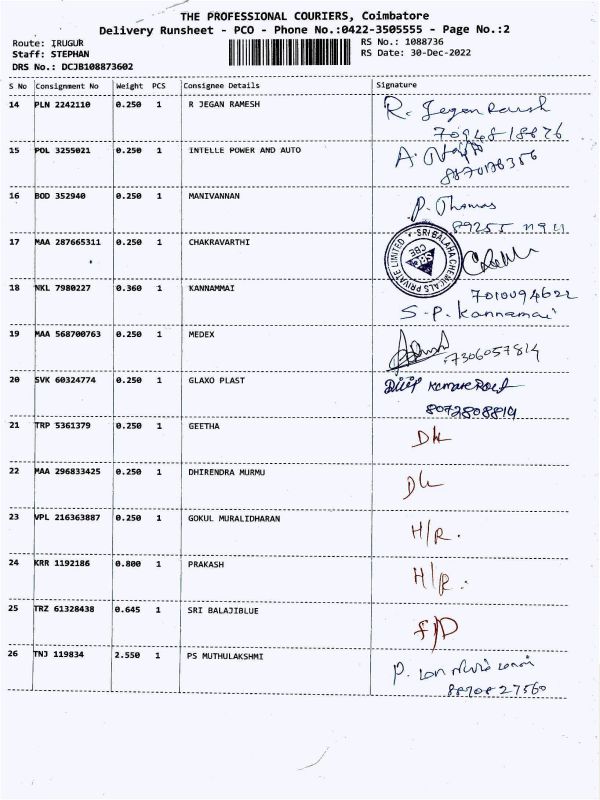 THE PROFESSIONAL COURIERS, Coimbatore
Delivery Runsheet - PCO - Phone No.:0422-3505555 - Page No.:2
Route: IRUGUR
Staff: STEPHAN
DRS No.: DCJB108873602
RS No.: 1088736
RS Date: 30-Dec-2022
S No Consignment No Weight PCS Consignee Details Signature
14 PLN 2242110 0.250 1 R JEGAN RAMESH R. Jegan
15 POL 3255021 0.250 1 INTELLE POWER AND AUTO A.
16 BOD 352940 0.250 1 MANIVANNAN P. Thomas
89255
17 MAA 287665311 0.250 1 CHAKRAVARTHI
SRI BALAHA CHEMICALS PRIVATE LIMITED
CBE
18 NKL 7980227 0.360 1 KANNAMMAI 7010094622
S-P. Kannamai
19 MAA 568700763 0.250 1 MEDEX 7306057814
20 SVK 60324774 0.250 1 GLAXO PLAST
8072808814
21 TRP 5361379 0.250 1 GEETHA DK
22 MAA 296833425 0.250 1 DHIRENDRA MURMU DL
23 VPL 216363887 0.250 1 GOKUL MURALIDHARAN H/R.
24 KRR 1192186 0.800 1 PRAKASH H/R.
25 TRZ 61328438 0.645 1 SRI BALAJIBLUE F/D
26 TNJ 119834 2.550 1 PS MUTHULAKSHMI P.
88708 27560